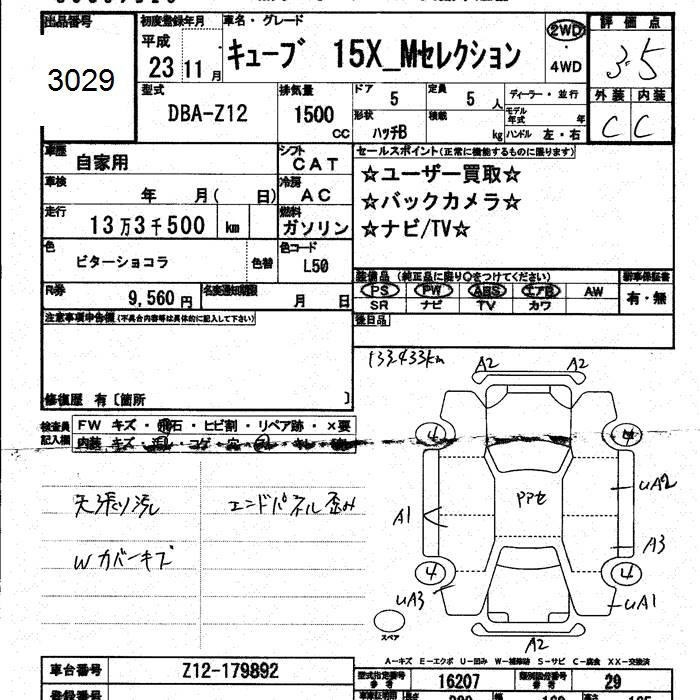 出品番号
3029
初度登録年月
平成
23 11 月
車名・グレード
キューブ 15X_Mセレクション
2WD
・
4WD
評価点
3.5
外装 内装
C C
型式
DBA-Z12
排気量
1500
CC
ドア
5
定員
5 人
ディーラー・並行
形状
ハッチB
積載
kg
モデル年式 年
ハンドル 左・右
車歴
自家用
シフト
CAT
セールスポイント(正常に機能するものに限ります)
☆ユーザー買取☆
☆バックカメラ☆
☆ナビ/TV☆
車検
年 月( 日)
冷房
AC
走行
13万3千500 km
燃料
ガソリン
色
ビターショコラ
色替
色コード
L50
装備品(純正品に限り○をつけてください)
PS PW ABS エアB AW
SR ナビ TV カワ
新車保証書
有・無
R券
9,560 円
名変通知期限
月 日
後日品
注意事項申告欄(不具合内容等は具体的に記入して下さい)
修復歴 有〔箇所 〕
検査員
記入欄
FW キズ・飛石・ヒビ割・リペア跡・×要
内装 キズ・汚レ・コゲ・穴
天張り汚レ
Wカバーキズ
エンドパネル歪み
133,433km
A2 A2
4 4
A1
UA2
A3
4 4
UA3
UA1
A2
スペア
A-キズ E-エクボ U-凹み W-補修跡 S-サビ C-腐食 XX-交換済
車台番号
Z12-179892
型式指定番号
参考
16207
類別区分番号
参考
29
登録番号